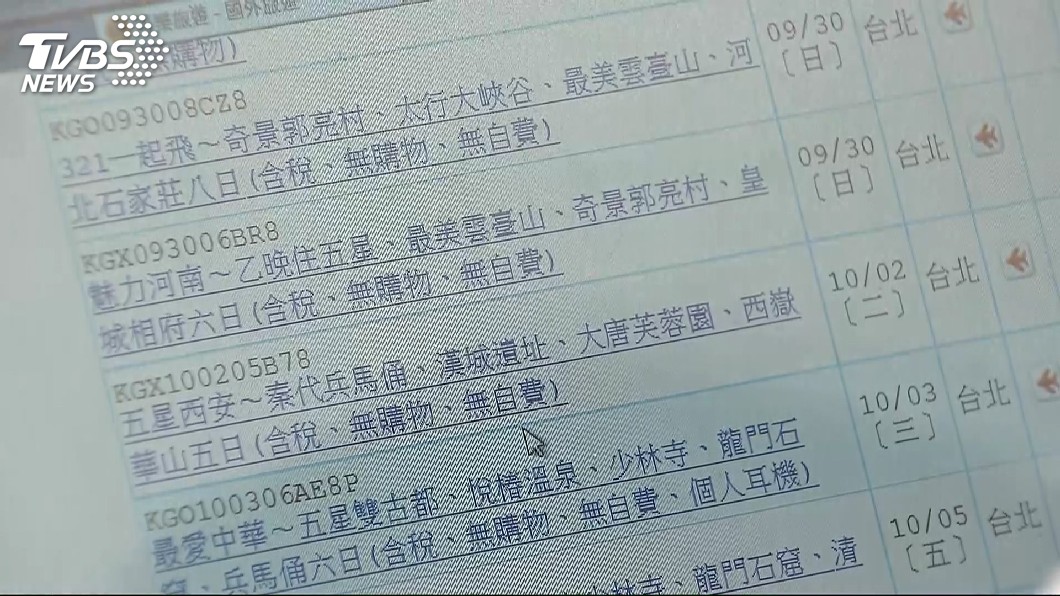 TVBS
NEWS
旅遊 - 國外旅遊
購物)
KGO093008CZ8
321一起飛～奇景郭亮村、太行大峽谷、最美雲臺山、河
北石家莊八日(含稅、無購物、無自費)
09/30
〔日〕
台北
KGX093006BR8
魅力河南～乙晚住五星、最美雲臺山、奇景郭亮村、皇
城相府六日(含稅、無購物、無自費)
09/30
〔日〕
台北
KGX100205B78
五星西安～秦代兵馬俑、漢城遺址、大唐芙蓉園、西嶽
華山五日(含稅、無購物、無自費)
10/02
〔二〕
台北
KGO100306AE8P
最愛中華～五星雙古都、悅椿溫泉、少林寺、龍門石
窟、兵馬俑六日(含稅、無購物、無自費、個人耳機)
10/03
〔三〕
台北
少林寺、龍門石窟、清
10/05
〔五〕
台北